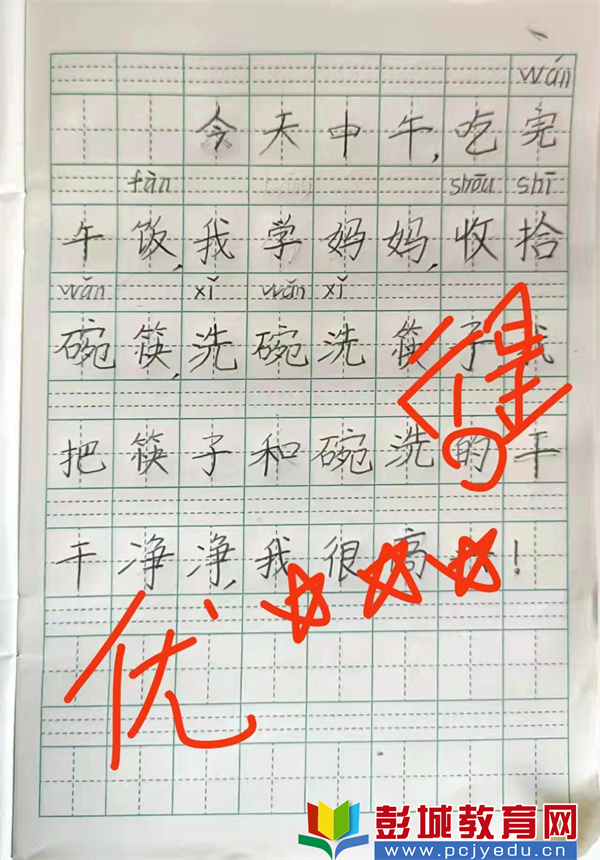 wán
今天中午,吃完
fàn shōu shī
午饭,我学妈妈,收拾
wǎn xǐ wǎn xǐ
碗筷,洗碗洗筷子我
得
把筷子和碗洗的干
干净净,我很高!
优
彭城教育网
www.pcjyedu.cn